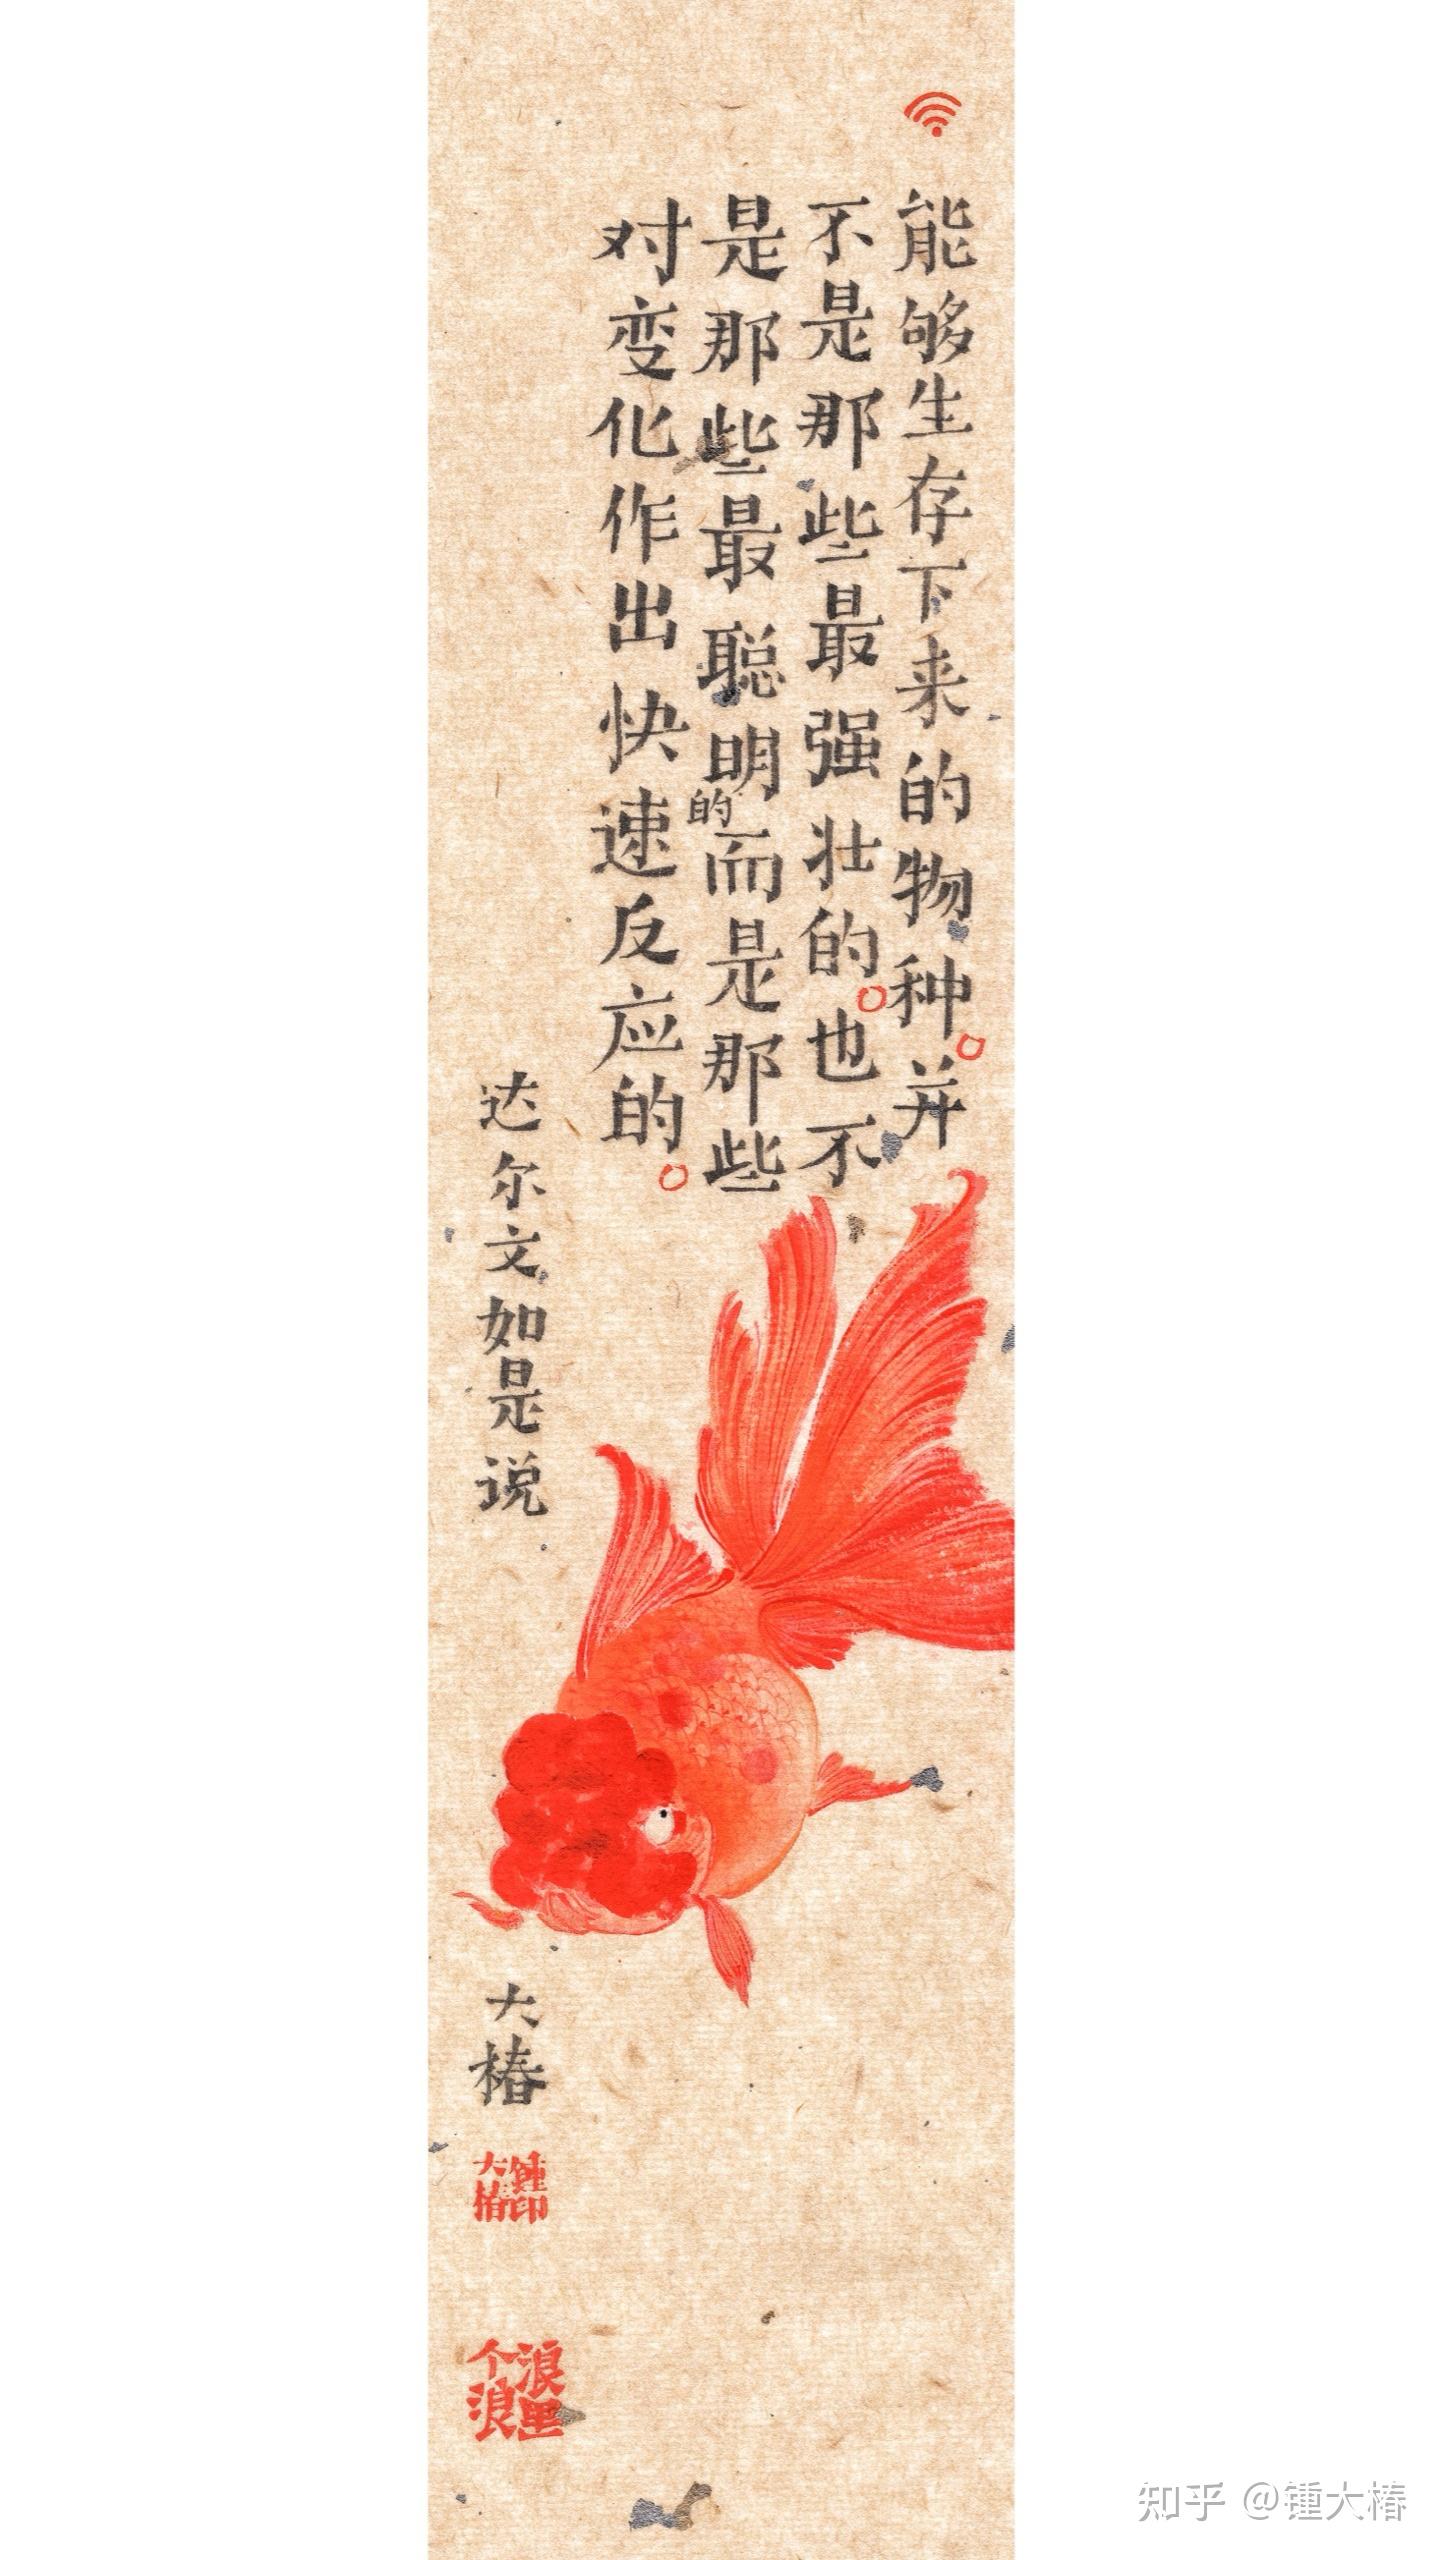 能够生存下来的物种。并
不是那些最强壮的。也不
是那些最聪明的而是那些
对变化作出快速反应的。
达尔文如是说
大椿
鍾印
大椿
浪里
个浪
知乎 @锺大椿